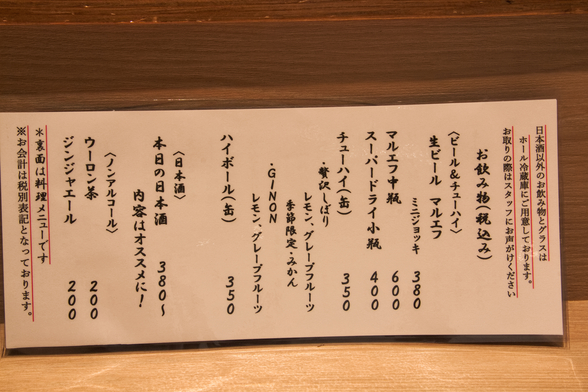 日本酒以外のお飲み物とグラスは
ホール冷蔵庫にご用意しております。
お取りの際はスタッフにお声がけください
お飲み物(税込み)
〈ビール&チューハイ〉
生ビール マルエフ
ミニジョッキ 380
マルエフ中瓶 600
スーパードライ小瓶 400
チューハイ(缶) 350
・贅沢しぼり
レモン、グレープフルーツ
季節限定・みかん
・GINON
レモン、グレープフルーツ
ハイボール(缶) 350
〈日本酒〉
本日の日本酒 380〜
内容はオススメに!
〈ノンアルコール〉
ウーロン茶 200
ジンジャエール 200
*裏面は料理メニューです
※お会計は税別表記となっております。